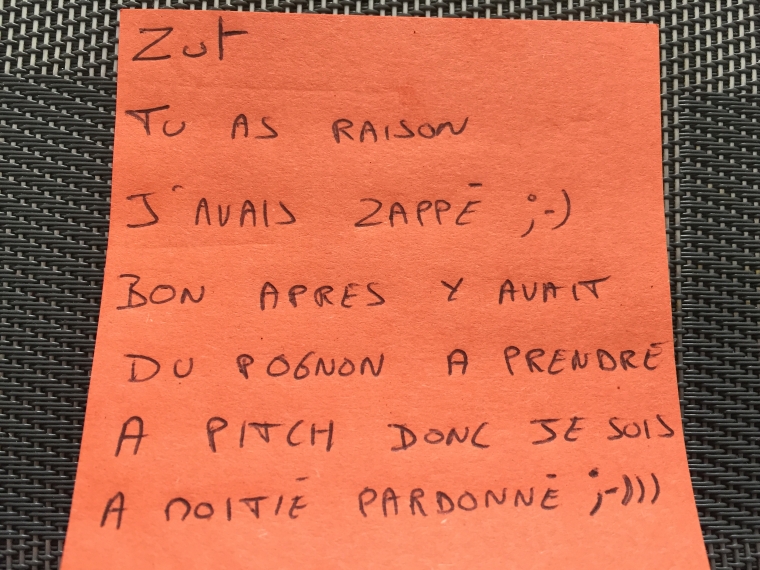 Zut
TU AS RAISON
J'AVAIS ZAPPÉ ;-)
BON APRES Y AVAIT
DU POGNON A PRENDRE
A PITCH DONC JE SUIS
A MOITIÉ PARDONNÉ ;-)))